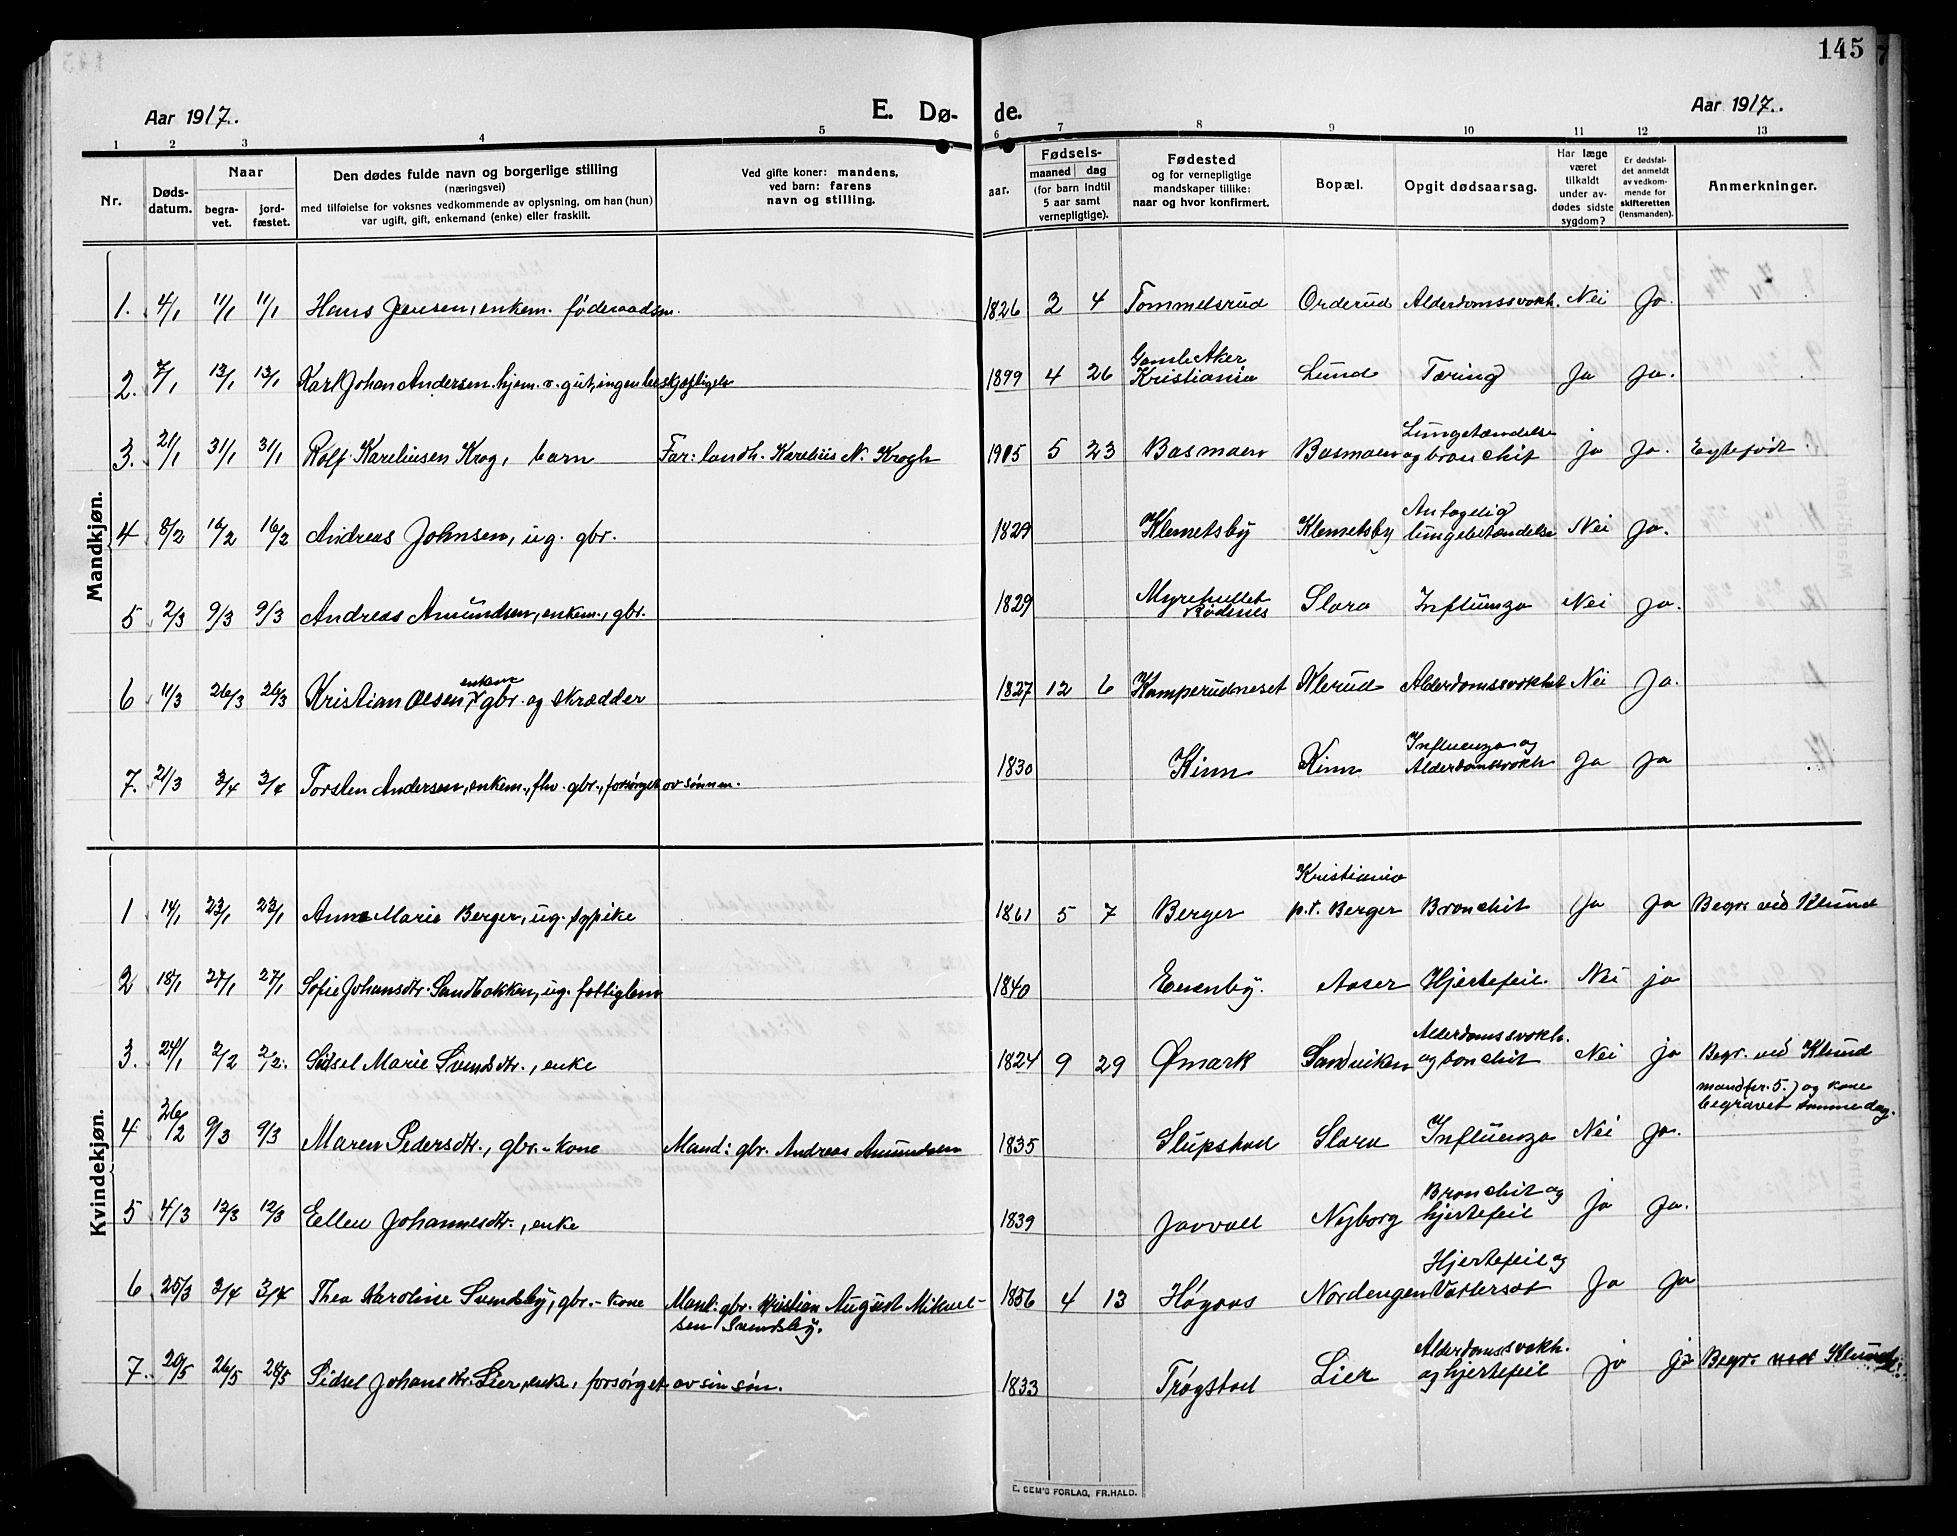 145
Aar 1917. E. Dø- de. Aar 1917.
1 2 3 4 5 6 7 8 9 10 11 12 13
Nr.
Døds-
datum.
Naar
begra-
vet.
jord-
fæstet.
Den dødes fulde navn og borgerlige stilling
(næringsvei)
med tilføielse for voksnes vedkommende av oplysning, om han (hun)
var ugift, gift, enkemand (enke) eller fraskilt.
Ved gifte koner: mandens,
ved barn: farens
navn og stilling.
Fødsels-
aar.
maaned dag
(for barn indtil
5 aar samt
vernepligtige).
Fødested
og for vernepligtige
mandskaper tillike:
naar og hvor konfirmert.
Bopæl.
Opgit dødsaarsag.
Har læge
været
tilkaldt
under av-
dødes sidste
sygdom?
Er dødsfal-
det anmeldt
av vedkom-
mende for
skifteretten
(lensmanden).
Anmerkninger.
Mandkjøn.
1. 4/1 11/1 11/1 Hans Jensen, enkem. føderaadsm. 1826 2 4 Tommelsrud Orderud Alderdomssvakh. Nei Ja.
2. 7/1 13/1 13/1 Karl Johan Andersen. hjem. v. gut, ingen beskjæftigelse 1899 4 26 Gamle Aker
Kristiania Lund Tæring Ja Ja.
3. 21/1 31/1 31/1 Rolf Kareliusen Krog, barn Far: landh. Karelius N. Krogh 1905 5 23 Basmoen Basmoen Lungebetændelse
og bronchit ja Ja. Egtefødt
4 8/2 16/2 16/2 Andreas Johnsen, ug. gbr. 1829 Klemetsby Klemetsby Antagelig
lungebetændelse Nei Ja.
5 2/3 9/3 9/3 Andreas Amundsen, enkem., gbr. 1829 Myrehullet
Rødenes Slora Influenza Nei Ja.
6 11/3 26/3 26/3 Kristian Olsen enkem gbr. og skrædder 1827 12 6 Kamperudneset Klerud Alderdomssvakhet Nei Ja.
7. 21/3 3/4 3/4 Torsten Andersen, enkem., fhv. gbr., forsørget av sønnen. 1830 Kinn Kinn Influenza og
Alderdomsvakh Ja Ja
Kvindekjøn.
1 14/1 23/1 23/1 Anne Marie Berger, ug. sypike 1861 5 7 Berger Kristiania
p.t. Berger Bronchit Ja Ja Begr. ved Klund
2 18/1 27/1 27/1 Sofie Johansdtr. Sandbakken, ug. fattiglem 1840 Enenby. Aaser Hjertefeil. Nei ja
3. 24/1 2/2 2/2. Sidsel Marie Svendsdtr., enke 1824 9 29 Ømark Sandviken Alderdomssvakh.
og bonchit Nei ja Begr. ved Klund
4 26/2 9/3 9/3 Maren Pedersdtr., gbr.-kone Mand: gbr. Andreas Amundsen 1835 Slupstad Slora Influenza Nei Ja. mand (nr. 5.) og kone
begravet samme dag.
5 4/3 12/3 12/3 Ellen Johannesdtr., enke 1839 Javvall Nyborg Bronchit og
hjertefeil ja Ja.
6 25/3 3/4 3/4 Thea Karoline Svendsby, gbr.-kone Mand: gbr. Kristian August Mikael-
sen Svendsby. 1856 4 13 Høgaas Nordengen Hjertefeil og
Vattersot Ja Ja
7. 20/5 26/5 26/5 Sidsel Johansdtr. Lier, enk, forsørget av sin søn. 1833 Trøgstad Lier Alderdomssvakh.
og hjertefeil ja ja Begr. ved Klund
E. SEM'S FORLAG, FR.HALD.